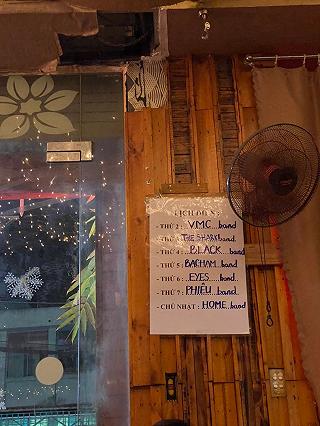 LỊCH DIỄN :
- THỨ 2 : ..VMC....band
- THỨ 3 : THE SHARK band
- THỨ 4 : ..BLACK.....band
- THỨ 5 : BAGHAM band
- THỨ 6 : ..EYES......band
- THỨ 7 : PHIÊU band
- CHỦ NHẬT : HOME band